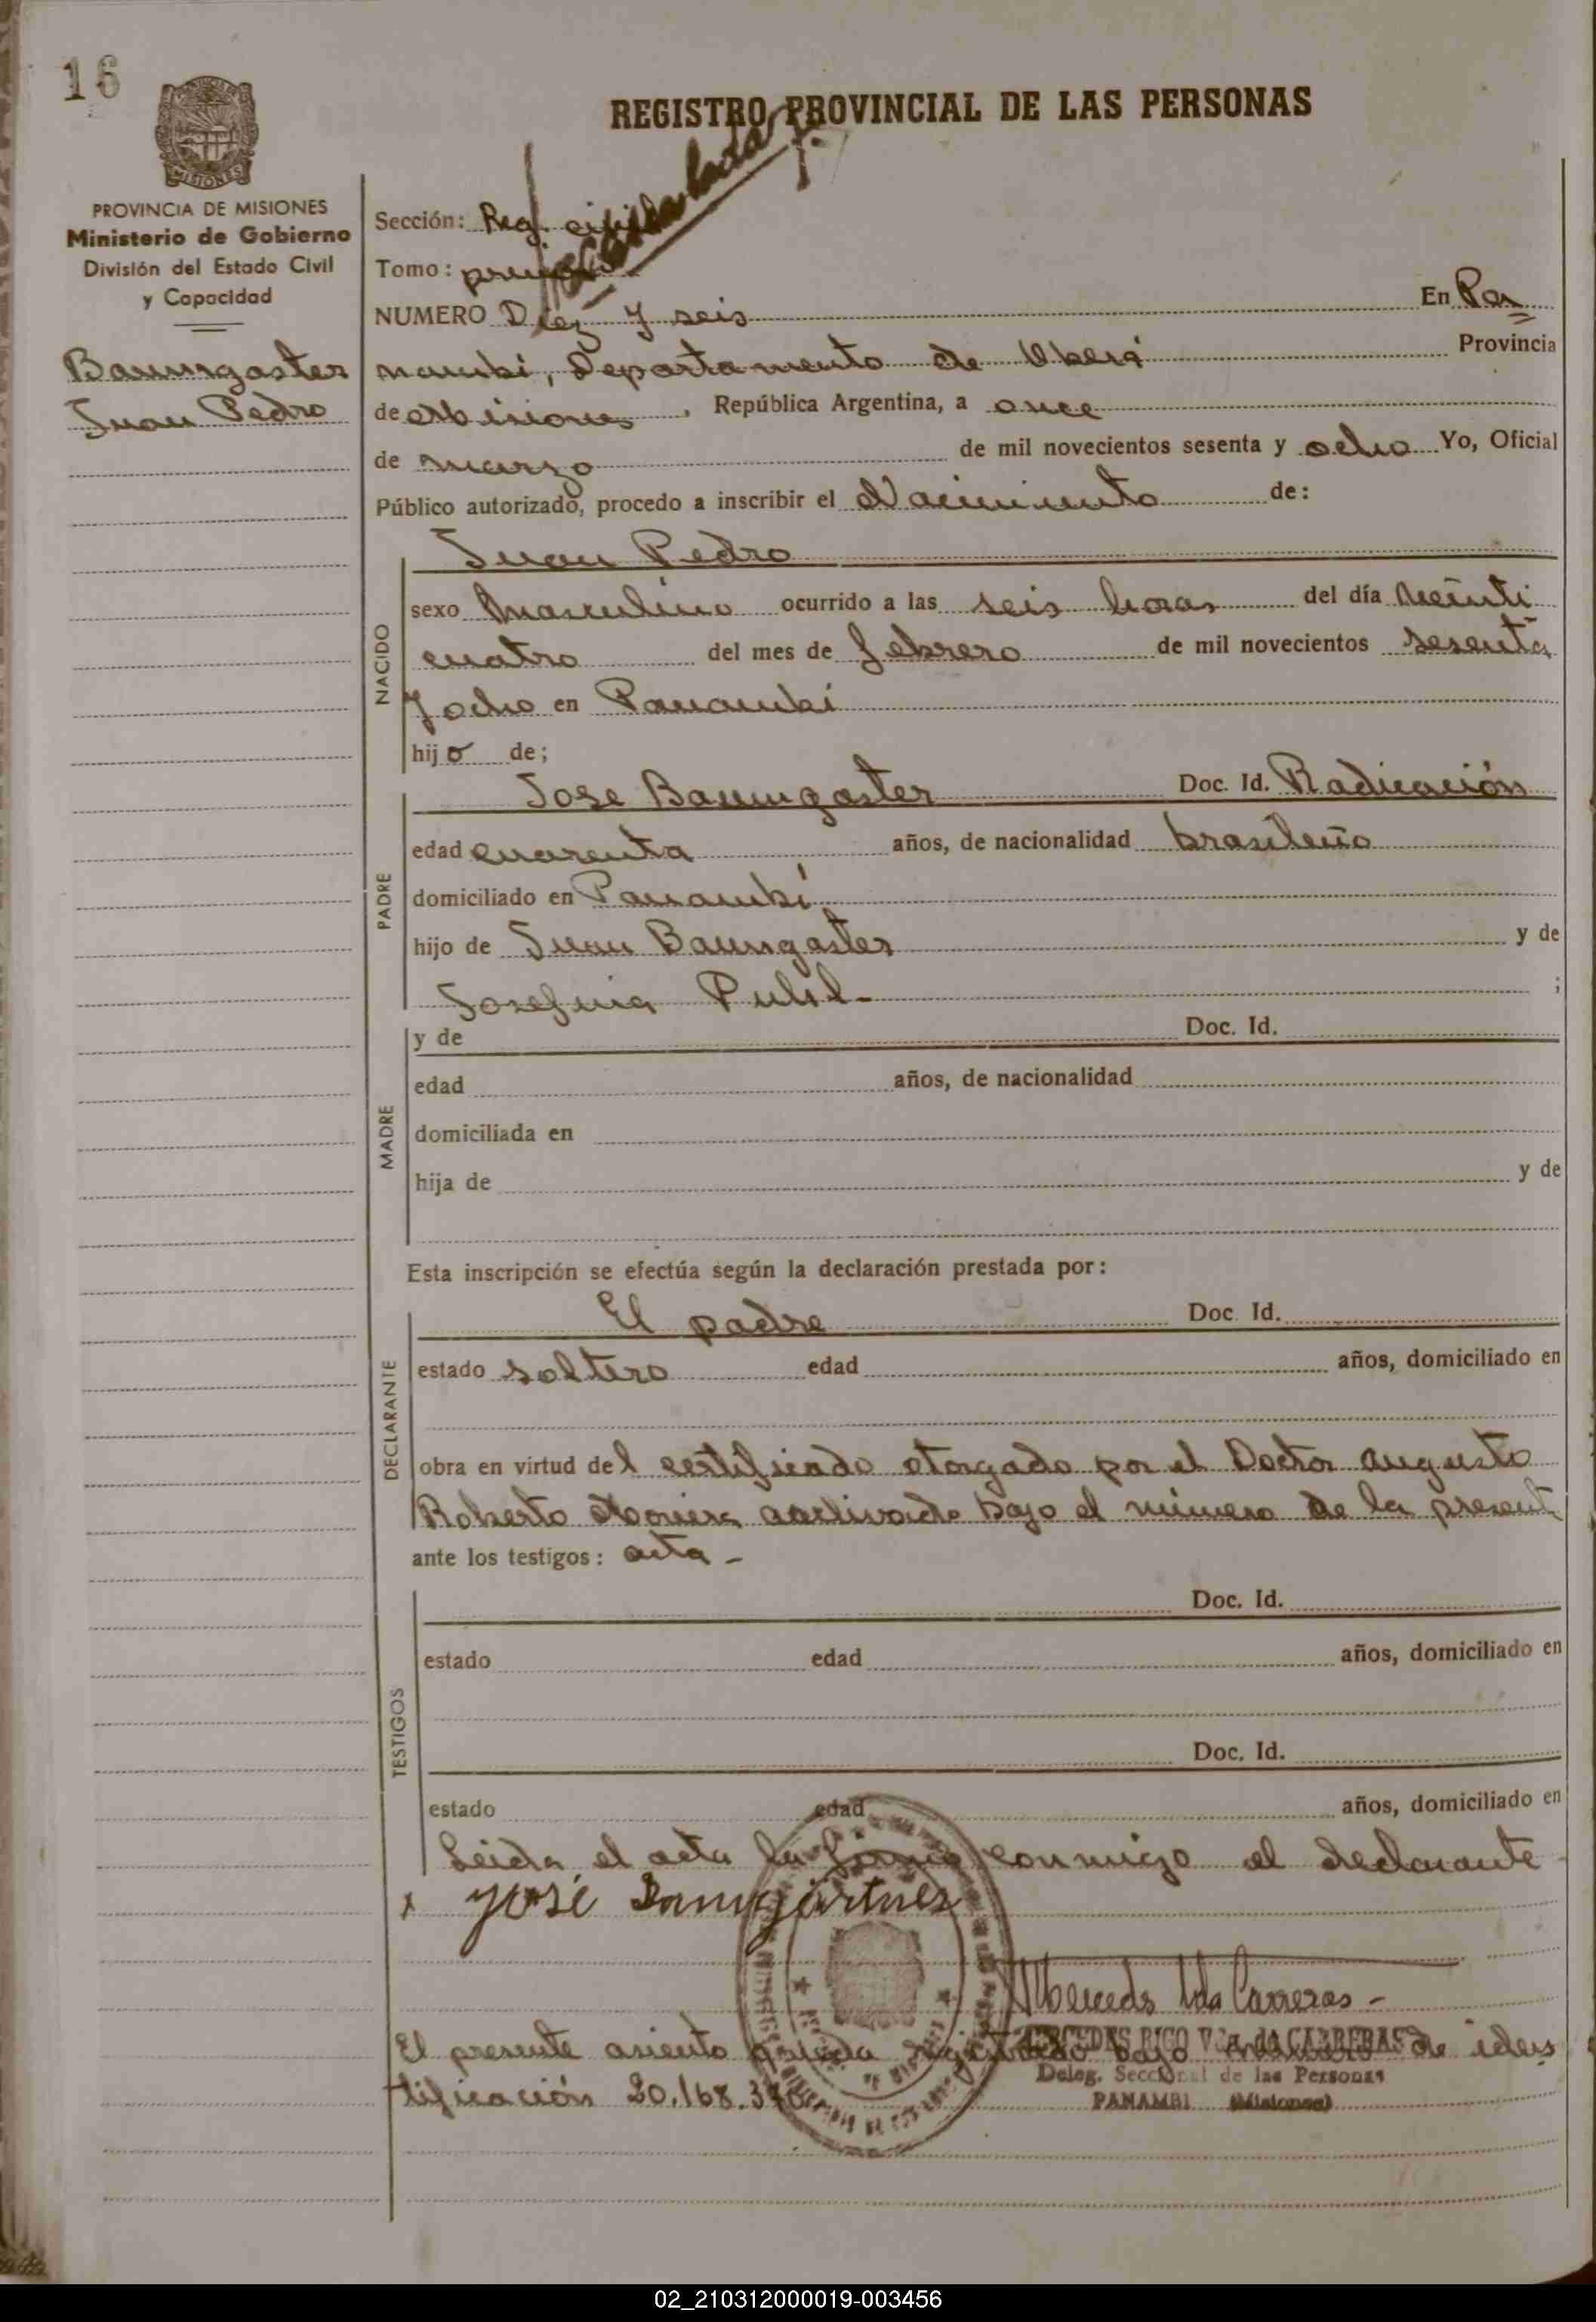 16
REGISTRO PROVINCIAL DE LAS PERSONAS
MISIONES
PROVINCIA DE MISIONES
Ministerio de Gobierno
División del Estado Civil
y Capacidad
Baumgaster
Juan Pedro
Sección: Reg.
Tomo:
NUMERO Diez y seis En Pa
nambi, Departamento de Oberá Provincia
de Misiones, República Argentina, a once
de marzo de mil novecientos sesenta y ocho Yo, Oficial
Público autorizado, procedo a inscribir el Nacimiento de:
NACIDO
Juan Pedro
sexo Masculino ocurrido a las seis horas del día veinti
cuatro del mes de febrero de mil novecientos sesenta
y ocho en Panambi
hijo de;
PADRE
Jose Baumgaster Doc. Id. Radicación
edad cuarenta años, de nacionalidad brasileño
domiciliado en Panambi
hijo de Juan Baumgaster y de
Josefina ;
MADRE
y de Doc. Id.
edad años, de nacionalidad
domiciliada en
hija de y de
Esta inscripción se efectúa según la declaración prestada por:
DECLARANTE
El padre Doc. Id.
estado soltero edad años, domiciliado en
obra en virtud del certificado otorgado por el Doctor Augusto
Roberto archivado bajo el número de la present
ante los testigos: acta -
TESTIGOS
Doc. Id.
estado edad años, domiciliado en
Doc. Id.
estado edad años, domiciliado en
Leida el acta la firma conmigo el declarante
x José Baumgärtner
Mercedes Vda Carreras -
MERCEDES RICO Vda. de CARRERAS
Deleg. Seccional de las Personas
PANAMBI (Misiones)
El presente asiento queda registrado bajo de iden
tificación 20.168.
02_210312000019-003456